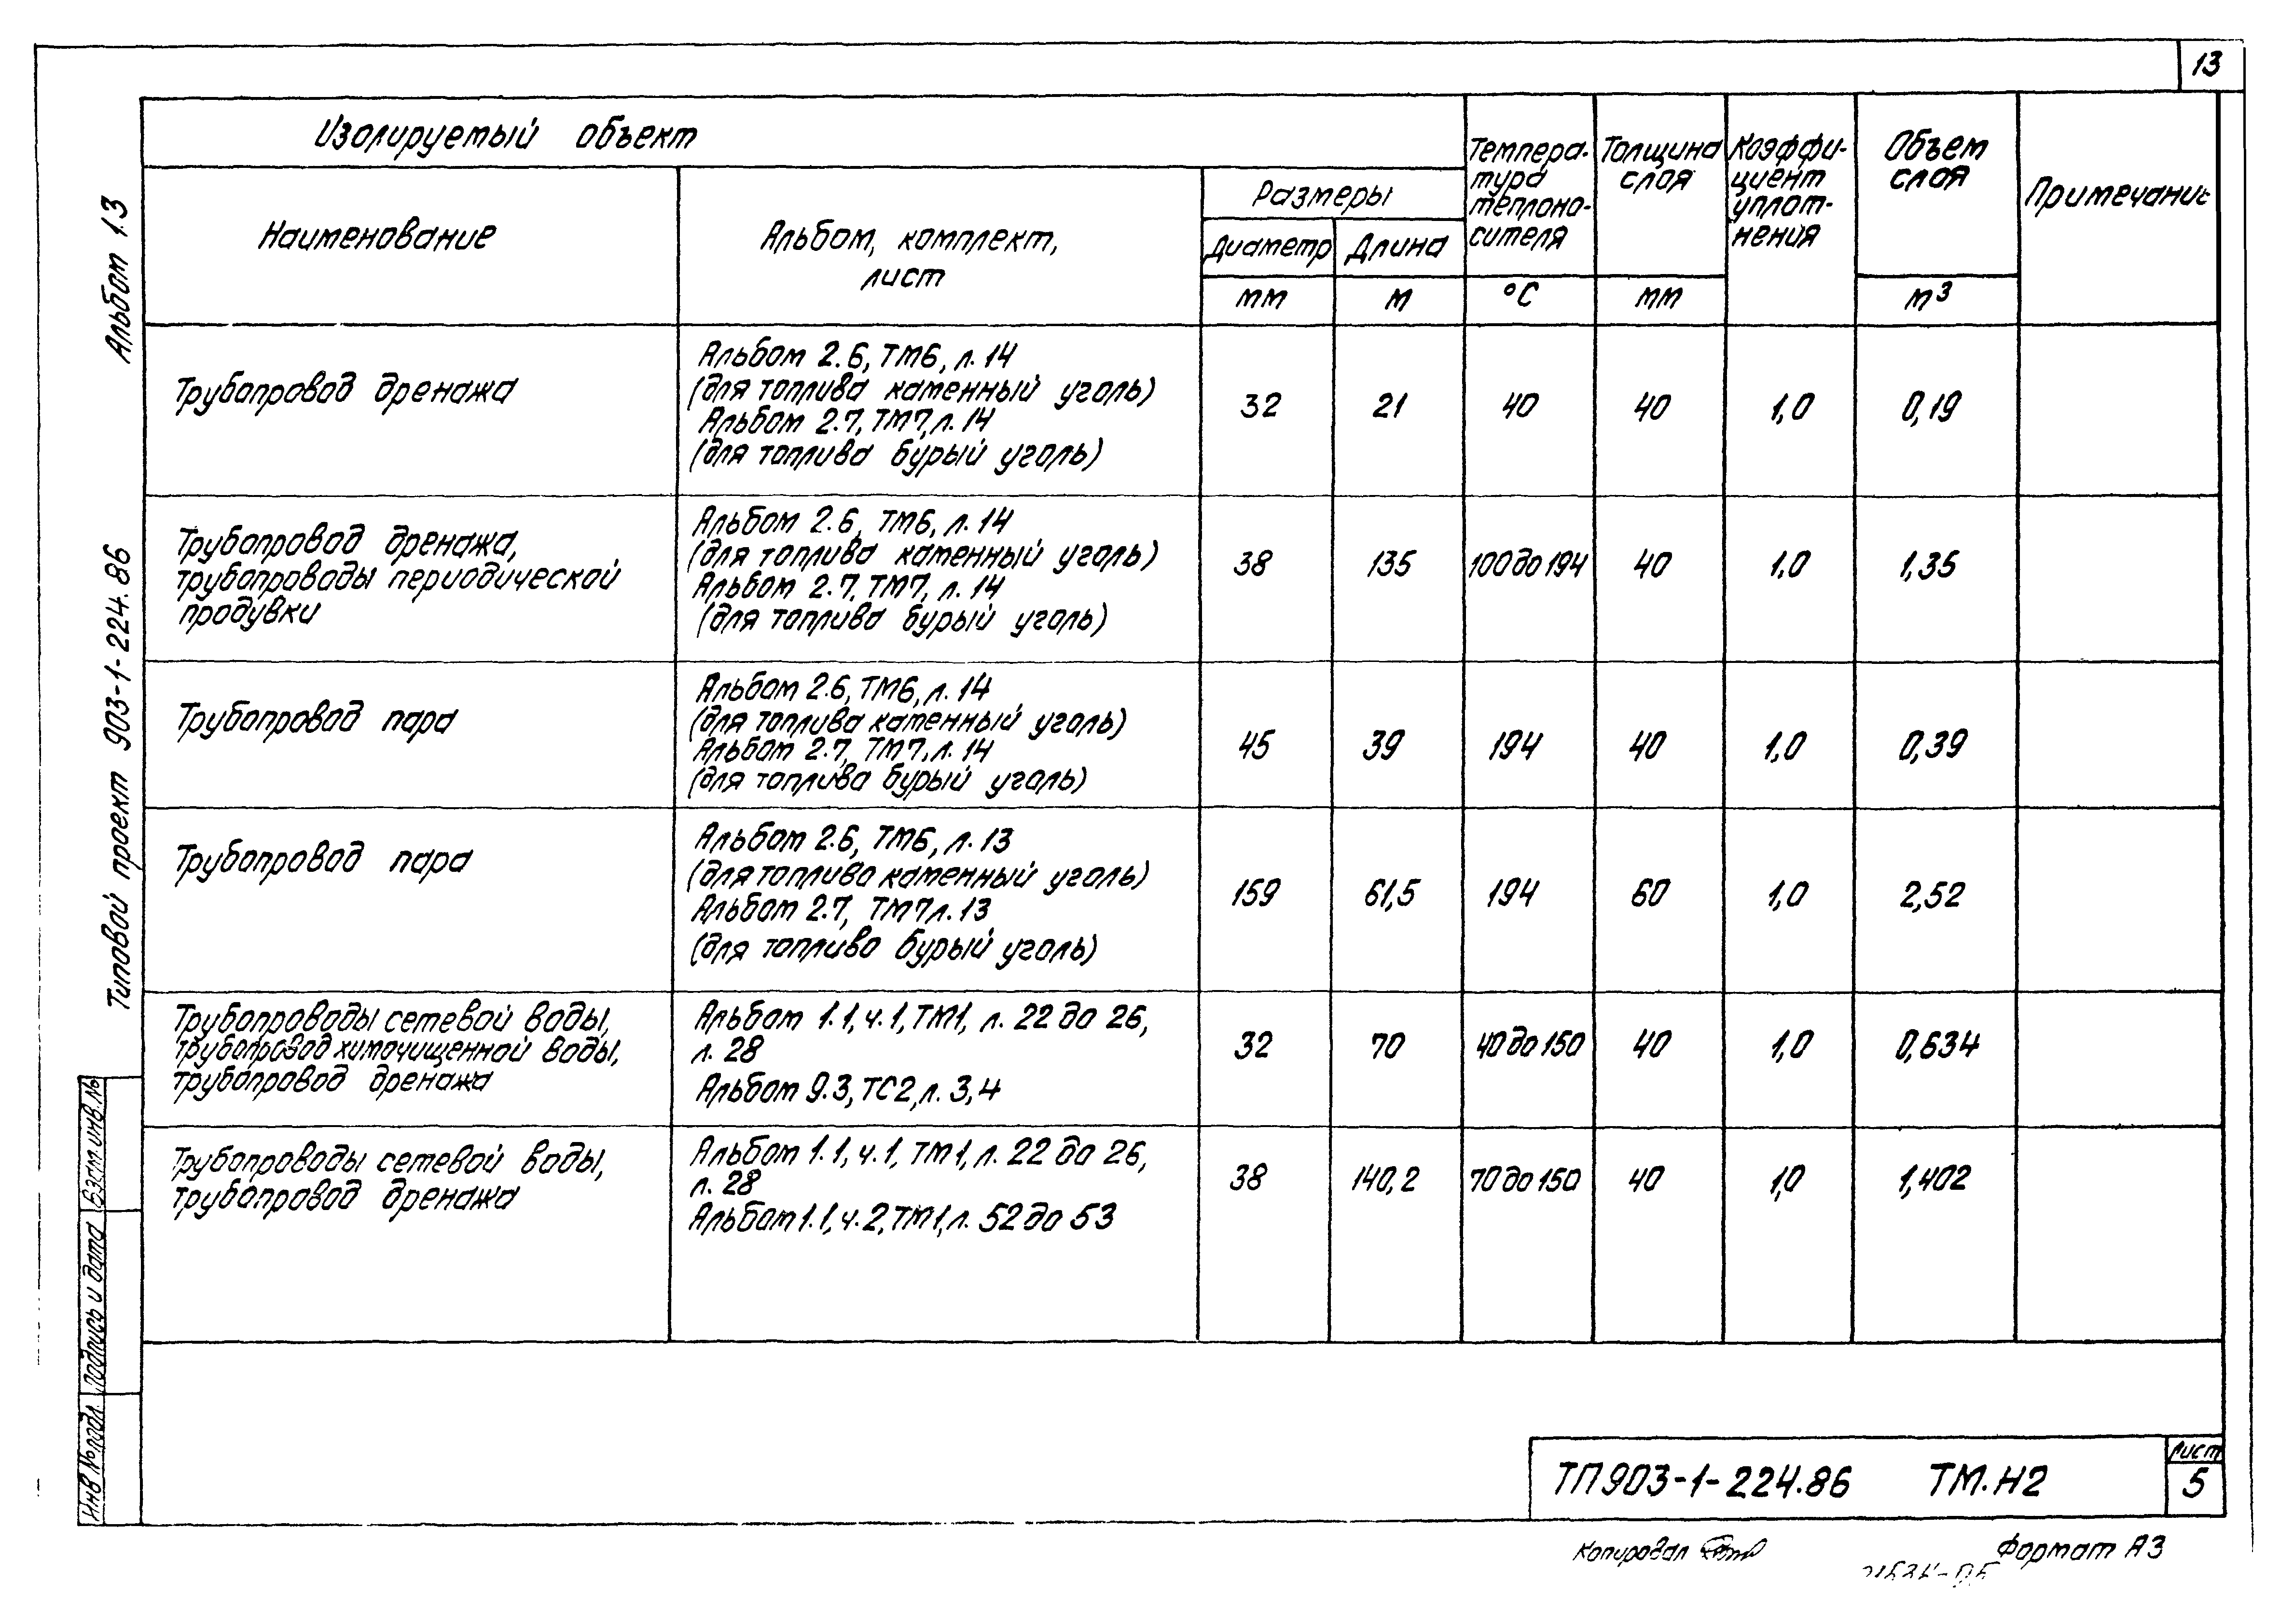 13
Альбом 1.3
Типовой проект 903-1-224.86
Изолируемый объект
Наименование
Альбом, комплект,
лист
Размеры
Диаметр
Длина
мм
м
Темпера-
тура
теплоно-
сителя
°С
Толщина
слоя
мм
Коэффи-
циент
уплот-
нения
Объем
слоя
м3
Примечание
Трубопровод дренажа
Альбом 2.6, ТМ6, л. 14
(для топлива каменный уголь)
Альбом 2.7, ТМ7, л. 14
(для топлива бурый уголь)
32 21 40 40 1,0 0,19
Трубопровод дренажа,
трубопроводы периодической
продувки
Альбом 2.6, ТМ6, л. 14
(для топлива каменный уголь)
Альбом 2.7, ТМ7, л. 14
(для топлива бурый уголь)
38 135 100 до 194 40 1,0 1,35
Трубопровод пара
Альбом 2.6, ТМ6, л. 14
(для топлива каменный уголь)
Альбом 2.7, ТМ7, л. 14
(для топлива бурый уголь)
45 39 194 40 1,0 0,39
Трубопровод пара
Альбом 2.6, ТМ6, л. 13
(для топлива каменный уголь)
Альбом 2.7, ТМ7 л. 13
(для топлива бурый уголь)
159 61,5 194 60 1,0 2,52
Трубопроводы сетевой воды,
трубопровод химочищенной воды,
трубопровод дренажа
Альбом 1.1, ч.1, ТМ1, л. 22 до 26,
л. 28
Альбом 9.3, ТС2, л. 3,4
32 70 40 до 150 40 1,0 0,634
Трубопроводы сетевой воды,
трубопровод дренажа
Альбом 1.1, ч.1, ТМ1, л. 22 до 26,
л. 28
Альбом 1.1, ч.2, ТМ1, л. 52 до 53
38 140,2 70 до 150 40 1,0 1,402
Взam.инв.№
Подпись и дата
Инв № подл.
ТП 903-1-224.86 ТМ.Н2
Лист
5
Копировал
Формат А3